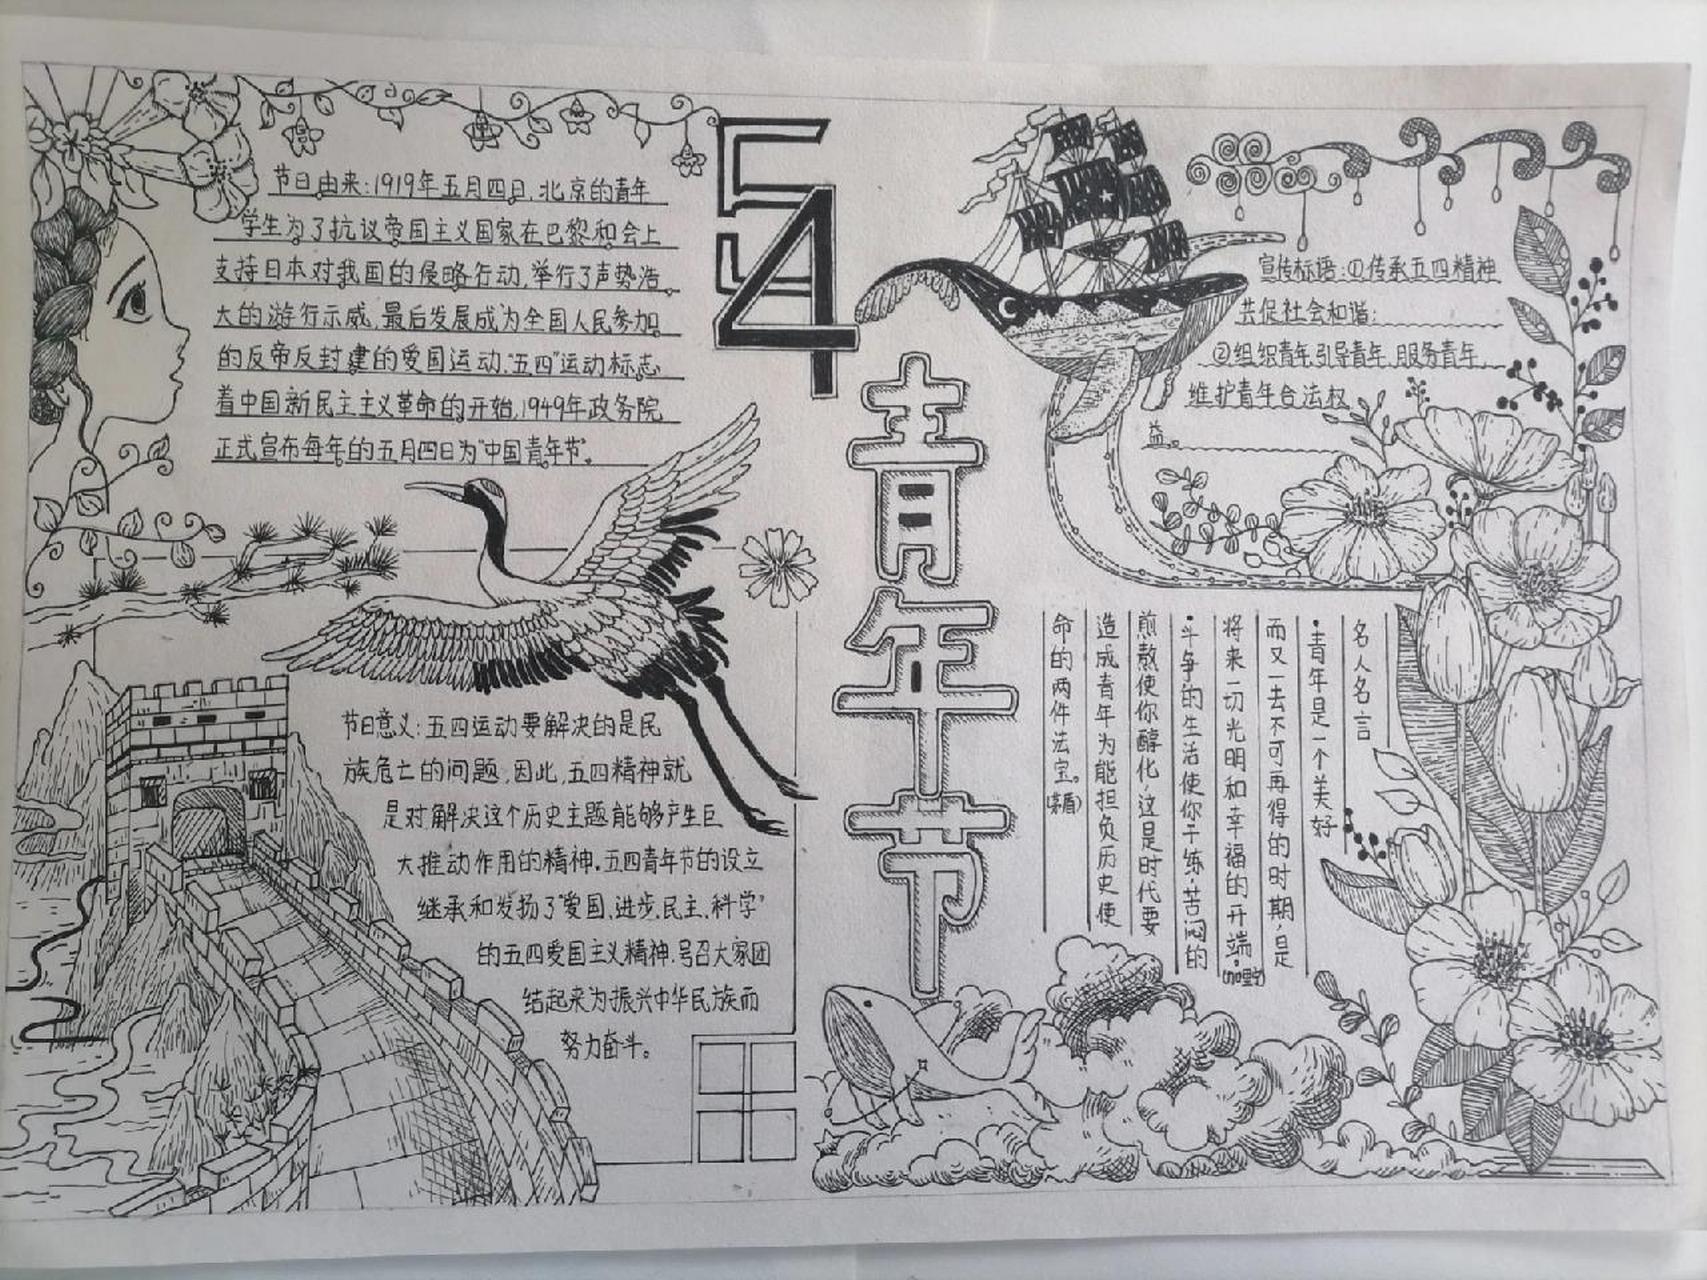 节日由来:1919年五月四日,北京的青年
学生为了抗议帝国主义国家在巴黎和会上
支持日本对我国的侵略行动,举行了声势浩
大的游行示威,最后发展成为全国人民参加
的反帝反封建的爱国运动,"五四"运动标志
着中国新民主主义革命的开始,1949年政务院
正式宣布每年的五月四日为"中国青年节"。
54
青年节
宣传标语:①传承五四精神
共促社会和谐:
②组织青年,引导青年,服务青年,
维护青年合法权
益。
节日意义:五四运动要解决的是民
族危亡的问题,因此,五四精神就
是对解决这个历史主题能够产生巨
大推动作用的精神.五四青年节的设立
继承和发扬了"爱国、进步、民主、科学"
的五四爱国主义精神.号召大家团
结起来为振兴中华民族而
努力奋斗。
名人名言
·青年是一个美好
而又一去不可再得的时期,是
将来一切光明和幸福的开端。(加里宁)
·斗争的生活使你干练,苦闷的
煎熬使你醇化,这是时代要
造成青年为能担负历史使
命的两件法宝。(茅盾)